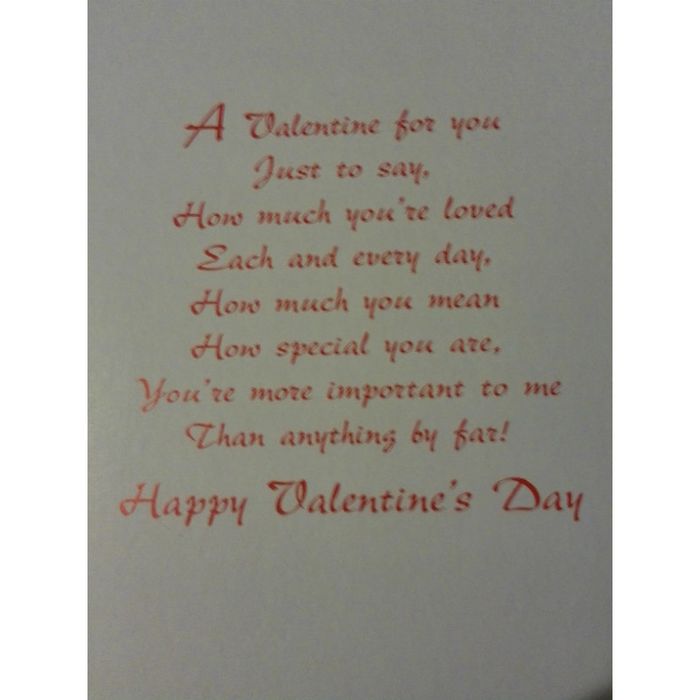 A Valentine for you
Just to say,
How much you're loved
Each and every day,
How much you mean
How special you are,
You're more important to me
Than anything by far!
Happy Valentine's Day